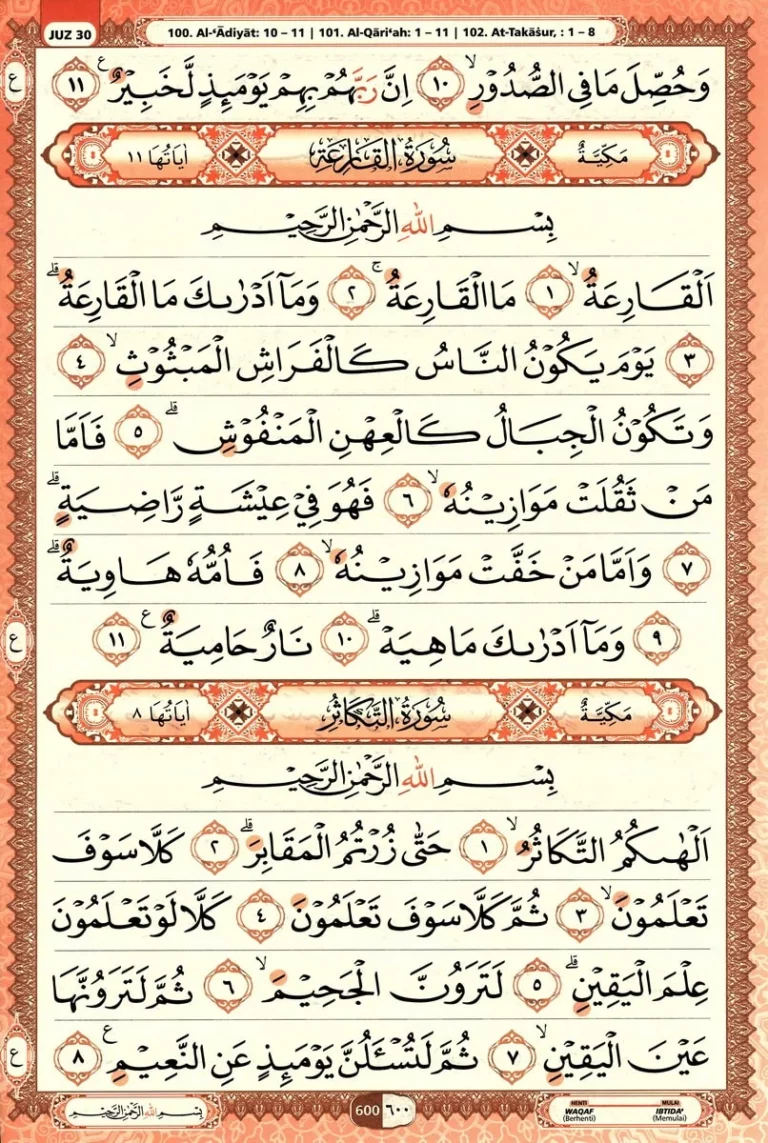 JUZ 30
100. Al-‘Ādiyāt: 10 – 11 | 101. Al-Qāri‘ah: 1 – 11 | 102. At-Takāṡur, : 1 – 8
وَحُصِّلَ مَا فِى الصُّدُوْرِۙ ١٠ اِنَّ رَبَّهُمْ بِهِمْ يَوْمَىِٕذٍ لَّخَبِيْرٌ ࣖ ١١
ع
مَكِّيَّةٌ سُوْرَةُ الْقَارِعَةِ اٰيَاتُهَا ١١
بِسْمِ اللّٰهِ الرَّحْمٰنِ الرَّحِيْمِ
اَلْقَارِعَةُۙ ١ مَا الْقَارِعَةُۚ ٢ وَمَآ اَدْرٰىكَ مَا الْقَارِعَةُۗ
٣ يَوْمَ يَكُوْنُ النَّاسُ كَالْفَرَاشِ الْمَبْثُوْثِۙ ٤
وَتَكُوْنُ الْجِبَالُ كَالْعِهْنِ الْمَنْفُوْشِۗ ٥ فَاَمَّا
مَنْ ثَقُلَتْ مَوَازِيْنُهٗۙ ٦ فَهُوَ فِيْ عِيْشَةٍ رَّاضِيَةٍۗ
٧ وَاَمَّا مَنْ خَفَّتْ مَوَازِيْنُهٗۙ ٨ فَاُمُّهٗ هَاوِيَةٌۗ
٩ وَمَآ اَدْرٰىكَ مَا هِيَهْۗ ١٠ نَارٌ حَامِيَةٌ ࣖ ١١
ع
مَكِّيَّةٌ سُوْرَةُ التَّكَاثُرِ اٰيَاتُهَا ٨
بِسْمِ اللّٰهِ الرَّحْمٰنِ الرَّحِيْمِ
اَلْهٰىكُمُ التَّكَاثُرُۙ ١ حَتّٰى زُرْتُمُ الْمَقَابِرَۗ ٢ كَلَّا سَوْفَ
تَعْلَمُوْنَۙ ٣ ثُمَّ كَلَّا سَوْفَ تَعْلَمُوْنَ ٤ كَلَّا لَوْ تَعْلَمُوْنَ
عِلْمَ الْيَقِيْنِۗ ٥ لَتَرَوُنَّ الْجَحِيْمَۙ ٦ ثُمَّ لَتَرَوُنَّهَا
عَيْنَ الْيَقِيْنِۙ ٧ ثُمَّ لَتُسْـَٔلُنَّ يَوْمَىِٕذٍ عَنِ النَّعِيْمِ ࣖ ٨
ع
بِسْمِ اللّٰهِ الرَّحْمٰنِ الرَّحِيْمِ
600 ٦٠٠
HENTI
WAQAF
(Berhenti)
MULAI
IBTIDA'
(Memulai)